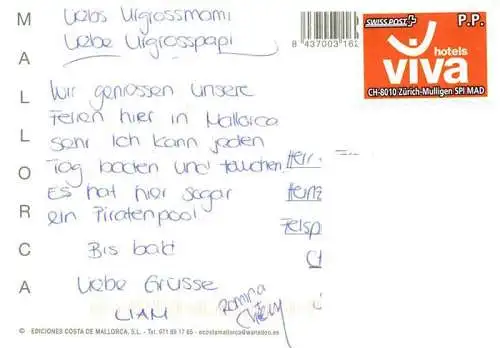 MALLORCA
Liebs Urgrossmami
Liebe Urgrosspapi
Wir geniessen unsere
Ferien hier in Mallorca
sehr Ich kann jeden
Tag baden und tauchen.
Es hat hier sogar
ein Piratenpool
Bis bald
Liebe Grüsse
LIAM
Romina
8 437003 162
SWISS POST P.P.
hotels
viva
CH-8010 Zürich-Mülligen SPI MAD
Herr
Heinz
Felsp
© EDICIONES COSTA DE MALLORCA, S.L. - Tel. 971 89 17 65 - ecostamallorca@wanadoo.es